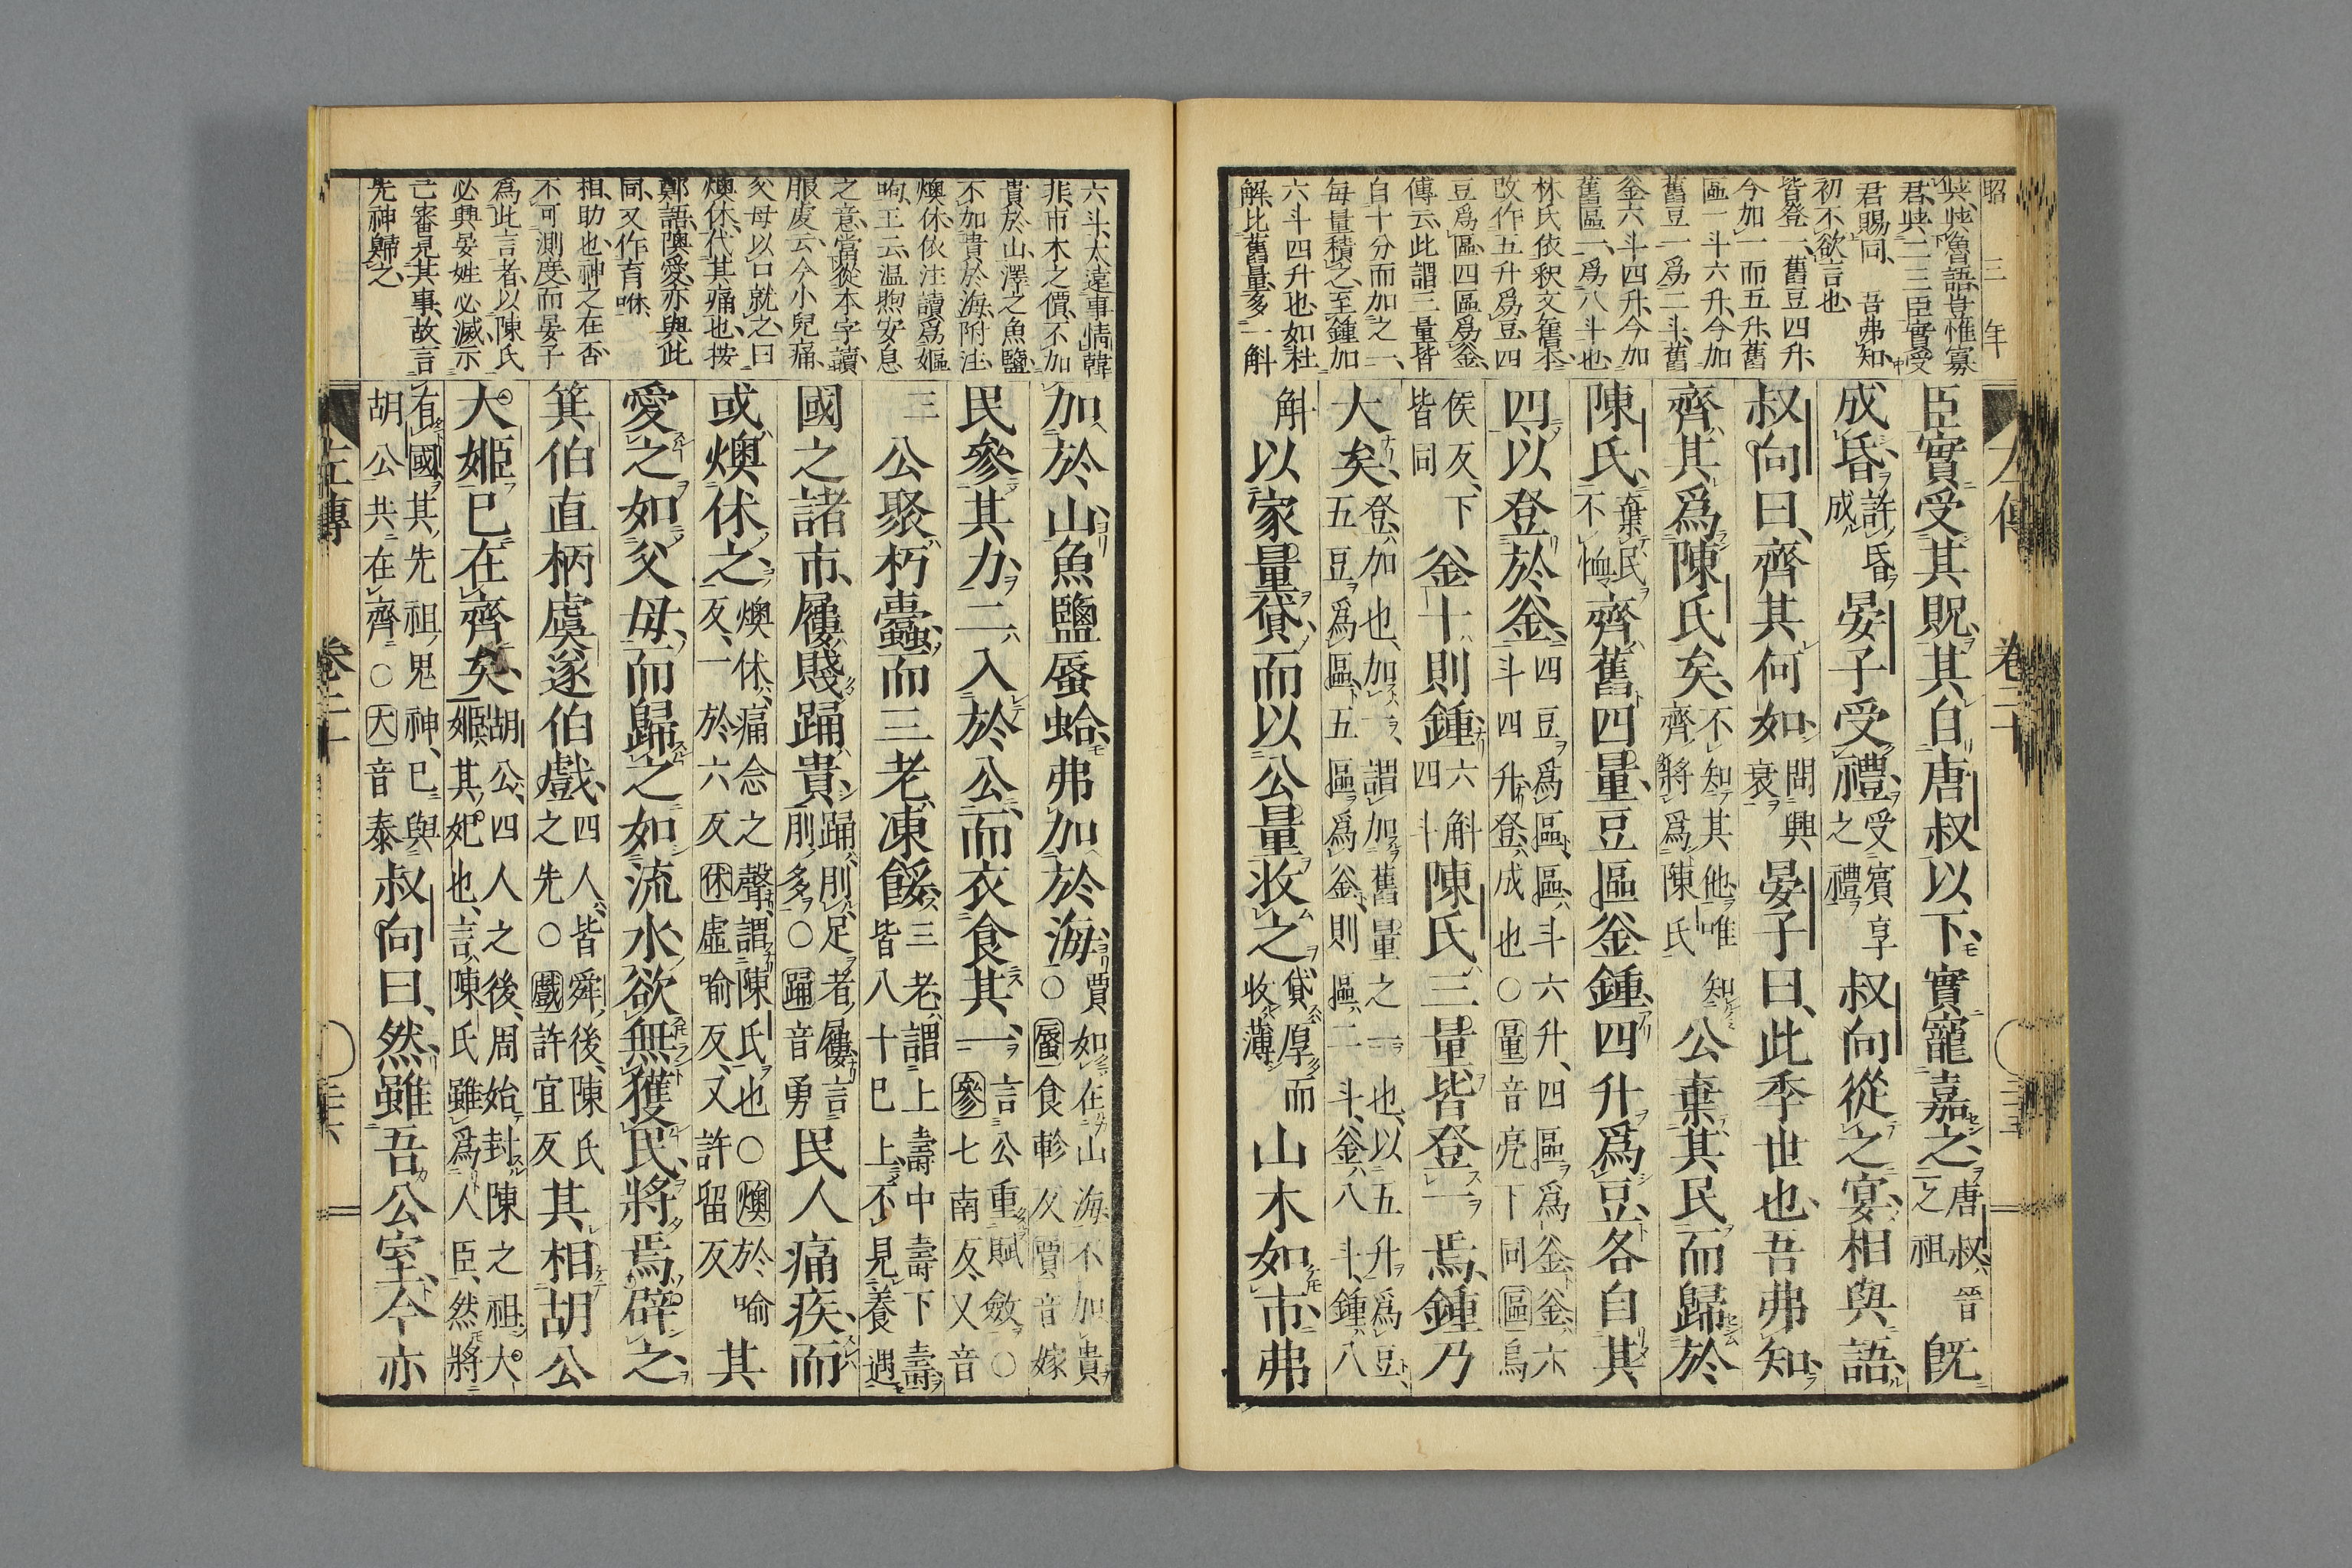 昭三年
㒵㒵魯語豈惟寡
君㒵二三臣實受
君賜同　吾弗知
初不欲言也
皆登一舊豆四升
今加一而五升舊
區一斗六升今加
舊豆一爲二斗舊
釜六斗四升今加
舊區一爲八斗也
林氏依釈文舊本
改作五升爲豆四
豆爲區四區爲釜
傳云此謂三量皆
自十分而加之一
每量積之至鍾加
六斗四升也如杜
解比舊量多一斛
左傳　卷二十
臣實受其貺其自唐叔以下實寵嘉之唐叔晉之祖既
成昏許昏成晏子受禮受賓享之禮叔向從之宴相與語
叔向曰齊其何如問興衰晏子曰此季世也吾弗知
齊其爲陳氏矣不知其他唯知齊將爲陳氏公棄其民而歸於
陳氏棄民不恤齊舊四量豆區釜鍾四升爲豆各自其
四以登於釜四豆爲區區斗六升四區爲釜釜六斗四升登成也○量音亮下同區烏
侯反下皆同釜十則鍾六斛四斗陳氏三量皆登一焉鍾乃
大矣登加也加一謂加舊量之一也以五升爲豆五豆爲區五區爲釜則區二斗釜八斗鍾八
斛以家量貸而以公量收之貸厚而收薄山木如市弗
六斗太遠事情韓
非市木之價不加
貴於山澤之魚鹽
不加貴於海附注
燠休依注讀爲嫗
呴王云温煦安息
之意當從本字讀
服虔云今小兒痛
父母以口就之曰
燠休代其痛也按
鄭語隩愛亦與此
同又作育咻
相助也神之在否
不可測度而晏子
爲此言者以陳氏
必興晏姓必滅示
己審見其事故言
先神歸之
加於山魚鹽蜃蛤弗加於海賈如在山海不加貴○蜃食軫反賈音嫁
民參其力二入於公而衣食其一言公重賦斂○參七南反又音
三公聚朽蠹而三老凍餒三老謂上壽中壽下壽皆八十已上不見養遇
國之諸市屨賤踊貴踊刖足者屨言刖多○踊音勇民人痛疾而
或燠休之燠休痛念之聲謂陳氏也○燠於喻反一於六反休虛喻反又許留反其
愛之如父母而歸之如流水欲無獲民將焉辟之
箕伯直柄虞遂伯戲四人皆舜後陳氏之先○戲許宜反其相胡公
大姬已在齊矣胡公四人之後周始封陳之祖大姬其妃也言陳氏雖爲人臣然將
有國其先祖鬼神已與胡公共在齊○大音泰叔向曰然雖吾公室今亦
左傳　卷二十